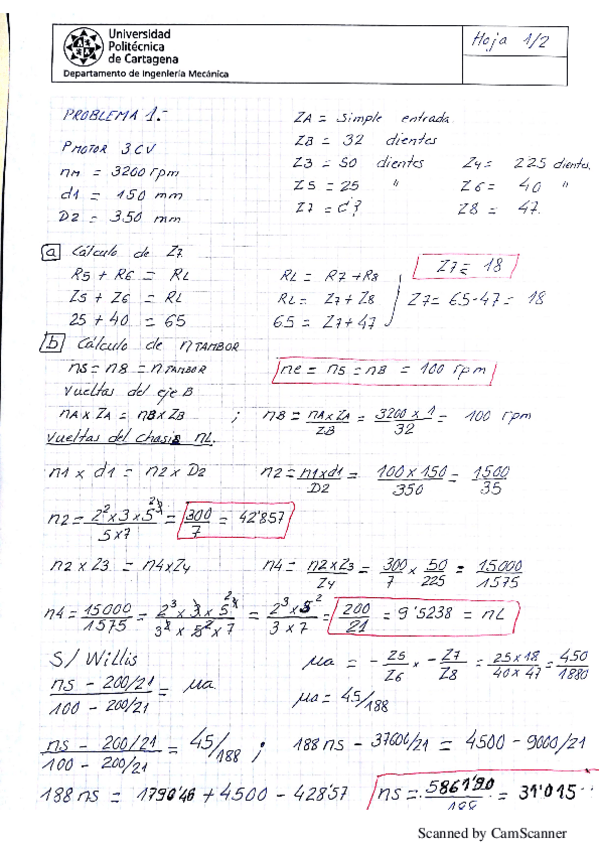 Universidad
Politécnica
de Cartagena
Departamento de Ingeniería Mecánica
Hoja 1/2
PROBLEMA 1.-
PMOTOR 3CV
nM = 3200 rpm
d1 = 150 mm
D2 = 350 mm
ZA = Simple entrada.
ZB = 32 dientes
Z3 = 50 dientes Z4 = 225 dientes.
Z5 = 25 " Z6 = 40 "
Z7 = d? Z8 = 47.
a Cálculo de Z7
R5 + R6 = RL RL = R7 + R8 Z7 = 18
Z5 + Z6 = RL RL = Z7 + Z8 Z7 = 65-47 = 18
25 + 40 = 65 65 = Z7 + 47
b Cálculo de nTAMBOR
ns = n8 = nTAMBOR ne = n5 = nB = 100 rpm
Vueltas del eje B
nA x ZA = nB x ZB ; nB = nA x ZA / ZB = 3200 x 1 / 32 = 100 rpm
Vueltas del chasis nL.
n1 x d1 = n2 x D2 n2 = n1xd1 / D2 = 100 x 150 / 350 = 1500 / 35
n2 = 2² x 3 x 5³ / 5 x 7 = 300 / 7 = 42'857
n2 x Z3 = n4 x Z4 n4 = n2 x Z3 / Z4 = 300 / 7 x 50 / 225 = 15000 / 1575
n4 = 15000 / 1575 = 2³ x 3 x 5⁴ / 3² x 5² x 7 = 2³ x 5² / 3 x 7 = 200 / 21 = 9'5238 = nL
S/ Willis μa = - Z5 / Z6 x - Z7 / Z8 = 25 x 18 / 40 x 47 = 450 / 1880
ns - 200/21 / 100 - 200/21 = μa. μa = 45/188
ns - 200/21 / 100 - 200/21 = 45/188 ; 188 ns - 37600/21 = 4500 - 9000/21
188 ns = 1790'46 + 4500 - 428'57 ns = 5861'90 / 188 = 31'015··
Scanned by CamScanner